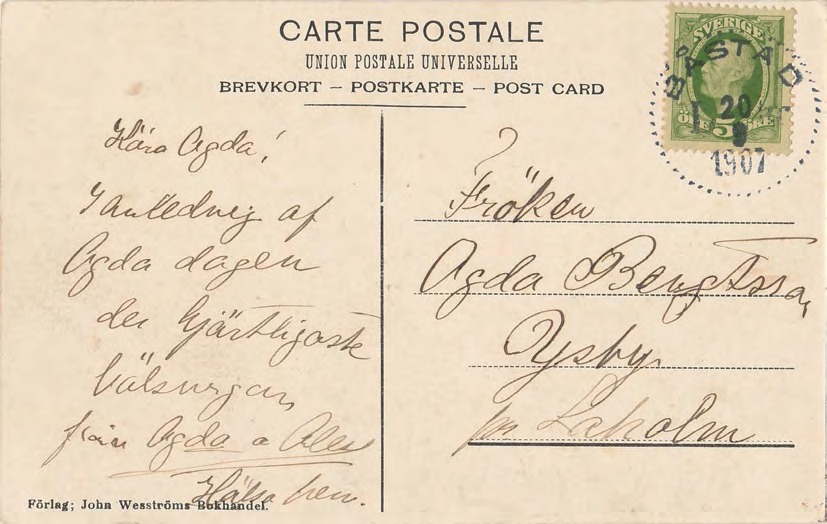 CARTE POSTALE
UNION POSTALE UNIVERSELLE
BREVKORT – POSTKARTE – POST CARD
SVERIGE
BÅSTAD
20
9
1907
5
ÖRE
Kära Agda!
I anledning af
Agda dagen
de hjärtligaste
från Agda o
Hälsa hem.
Fröken
Agda Bengtsson
Ysby
pr Laholm
Förlag; John Wesströms Bokhandel.